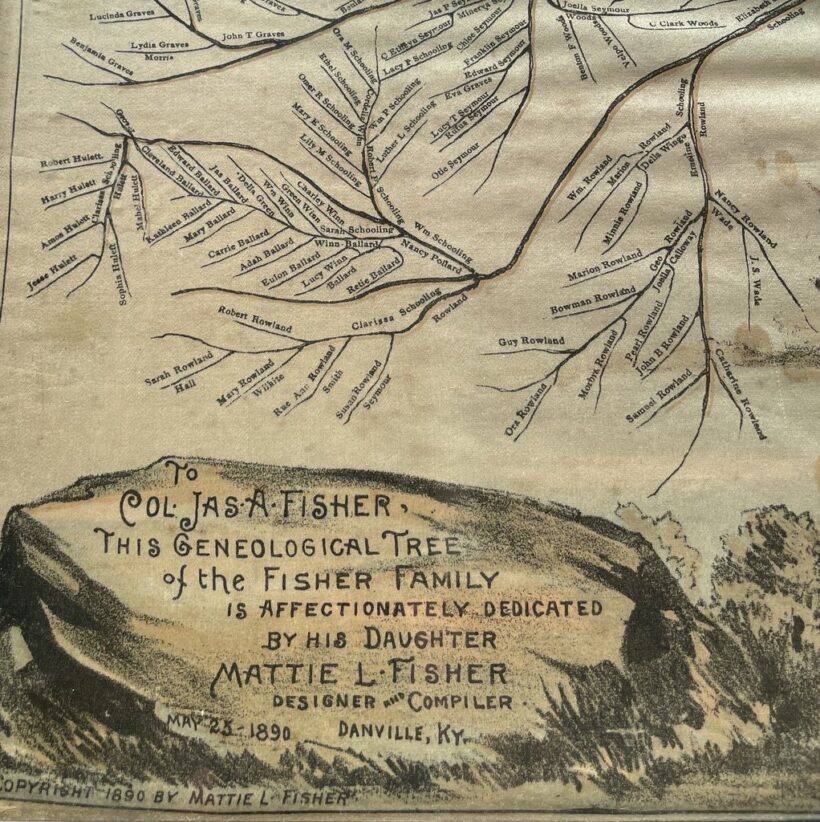 Lucinda Graves
Graves
Lydia Graves
Morris
John T Graves
Benjamin Graves
Jas P Seymour
Minerva Seymour
C Emilyn Seymour
Chloe Seymour
Lacy P Schooling
Franklin Seymour
Edward Seymour
Eva Graves
Lucy T Seymour
Rufus Seymour
Otie Seymour
Joella Seymour
Woods
C Clark Woods
Benton F Woods
Velpo Woods
Elizabeth
Schooling
Ora M Schooling
Ethel Schooling
Omer R Schooling
Mary E Schooling
Lily M Schooling
Cordelia Winn
Robert Schooling
Wm P Schooling
Luther L Schooling
George
Schooling
Clarissa
Hulett
Robert Hulett
Harry Hulett
Amos Hulett
Jesse Hulett
Sophia Hulett
Mabel Hulett
Edward Ballard
Cleveland Ballard
Jas Ballard
Della Green
Wm Winn
Green Winn
Charley Winn
Kathleen Ballard
Mary Ballard
Carrie Ballard
Adah Ballard
Eulon Ballard
Lucy Winn
Ballard
Retie Ballard
Sarah Schooling
Winn-Ballard
Wm Schooling
Nancy Pollard
Clarissa Schooling
Rowland
Robert Rowland
Sarah Rowland
Hall
Mary Rowland
Wilhite
Rue Ann Rowland
Smith
Susan Rowland
Seymour
Schooling
Rowland
Erastine
Rowland
Della Wingu
Marion
Wm. Rowland
Minnie Rowland
Nancy Rowland
Wade
J. S. Wade
Geo Rowland
Joella Calloway
Marion Rowland
Bowman Rowland
Guy Rowland
Ora Rowland
Pearl Rowland
John B Rowland
Samuel Rowland
Catharine Rowland
TO
COL· JAS·A·FISHER,
THIS GENEOLOGICAL TREE
of the FISHER FAMILY
IS AFFECTIONATELY DEDICATED
BY HIS DAUGHTER
MATTIE L·FISHER
DESIGNER AND COMPILER·
MAY 25-1890 DANVILLE, KY.
COPYRIGHT 1890 BY MATTIE L·FISHER